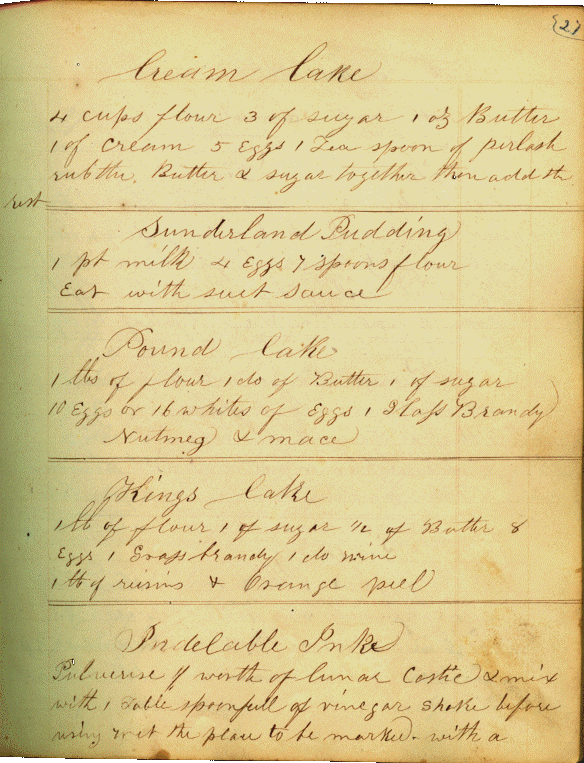 27
Cream Cake
4 cups flour 3 of sugar 1 oz Butter
1 of cream 5 Eggs 1 Tea spoon of perlash
rub the Butter & sugar together then add the
rest
Sunderland Pudding
1 pt milk 4 Eggs 7 spoons flour
Eat with suet sauce
Pound Cake
1 lbs of flour 1 do of Butter 1 of sugar
10 Eggs or 16 whites of Eggs 1 Glass Brandy
Nutmeg & mace
Kings Cake
1 lb of flour 1 of sugar 1/2 of Butter 8
Eggs 1 brandy 1 do wine
1 lb of reisins & Orange peel
Indelable Inke
Pulverise worth of lunar Costic & mix
with 1 Table spoonfull of vinegar shake before
using wet the place to be marked with a